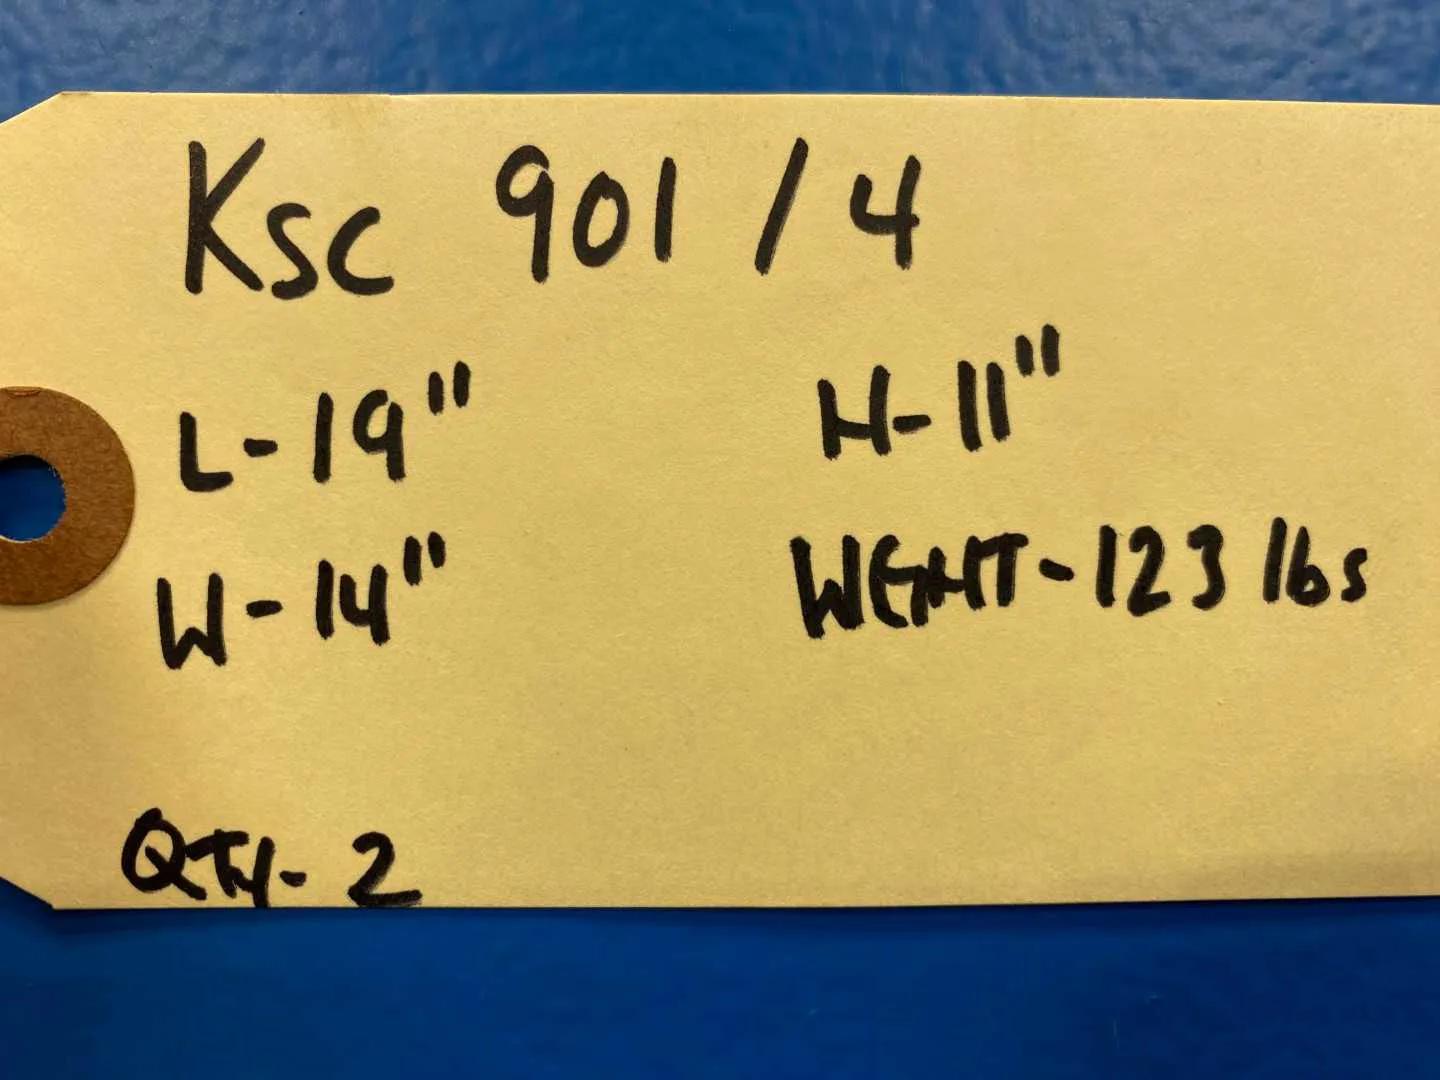 Ksc 901 / 4
L-19" H-11"
W-14" WEGHT-123 lbs
QTY-2